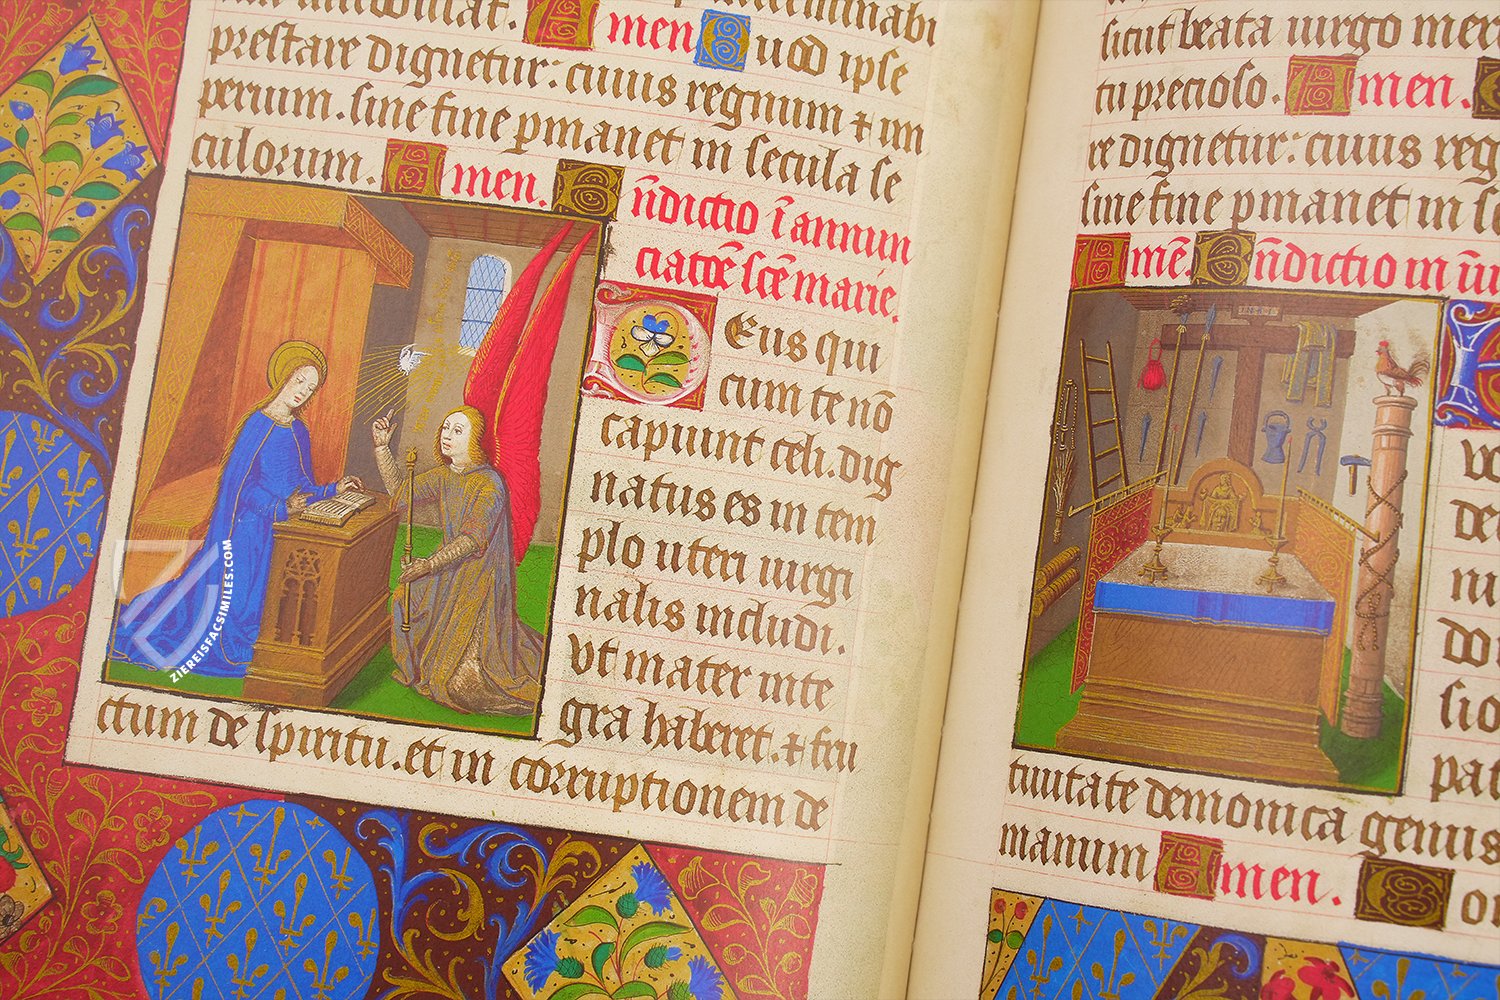 Amen Quod ipse
prestare dignetur: cuius regnum ⁊ im
perium. sine fine pmanet in secula se
culorum. Amen. Bn̄dictio ī annun
ciatōe scē marie.
Deus qui
cum te nō
capiunt celi. dig
natus es in tem
plo uteri uirgi
nalis includi.
Vt mater inte
gra haberet. ⁊ fru
ctum de spiritu. et in corruptionem de
ZIEREISFACSIMILES.COM
sicut beata uirgo mer
tu precioso. Amen.
re dignetur: cuius reg
sine fine pmanet in se
Amē. Bn̄dictio in
INRI
tiuitate demonica genus
manum Amen.